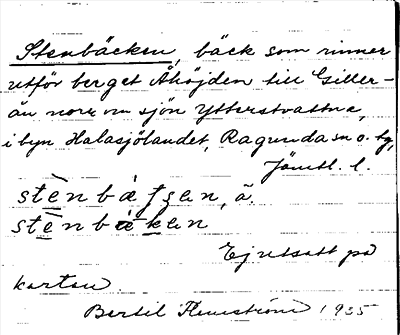 Stenbäcken, bäck som rinner
utför berget Åhöjden till Giller-
ån norr om sjön Ytterstvattne,
i byn Halasjölandet, Ragunda sn o. tg,
Jämtl. l.
stèn bætʃen, ä.
stèn bæken
Ej utsatt på
kartan.
Bertil Flemström 1935